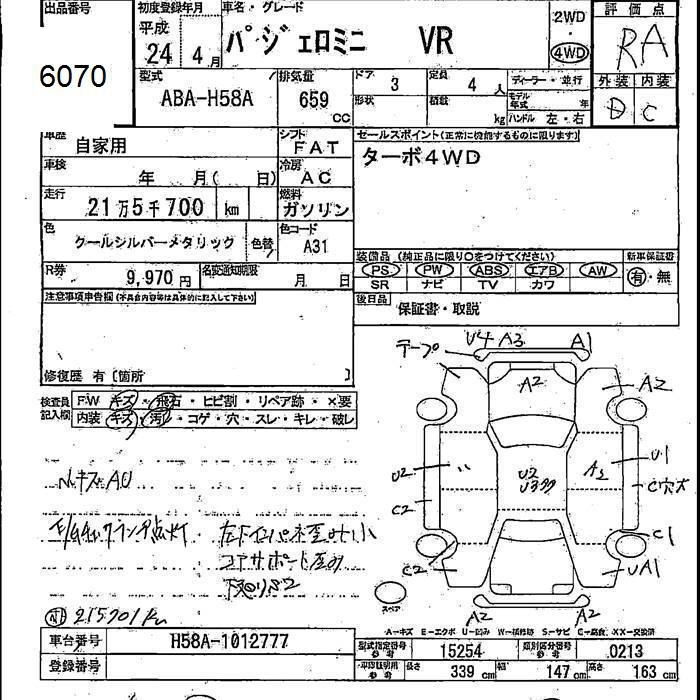 出品番号 初度登録年月 車名・グレード 2WD 評価点
平成 パジェロミニ VR 4WD RA
24 4月
6070
型式 排気量 ドア 3 定員 4人 ディーラー・並行 外装 内装
ABA-H58A 659 CC 形状 積載 kg モデル年式 年 D C
ハンドル 左・右
車歴 自家用 シフト FAT セールスポイント(正常に機能するものに限ります)
車検 年 月( 日) 冷房 AC ターボ4WD
走行 21万5千700 km 燃料 ガソリン
色 クールシルバーメタリック 色替 色コード A31
装備品(純正品に限り○をつけてください) 新車保証書
R券 9,970円 名変通知期限 月 日 PS PW ABS エアB AW 有・無
SR ナビ TV カワ
注意事項申告欄(不具合内容等は具体的に記入して下さい) 後日品 保証書・取説
修復歴 有〔箇所 〕
テープ U4 A3 A1
検査員記入欄 FW キズ・飛石・ヒビ割・リペア跡・×要
内装 キズ・汚れ・コゲ・穴・スレ・キレ・破レ
A2 A2
U2 U2 A2 U1
C穴大
C2
C1
C2 UA1
スペア
A2 A2
215701km
A-キズ E-エクボ U-凹み W-補修跡 S-サビ C-腐食 XX-交換済
車台番号 H58A-1012777 型式指定番号 参考 15254 類別区分番号 参考 0213
登録番号 長さ 339 cm 幅 147 cm 高さ 163 cm